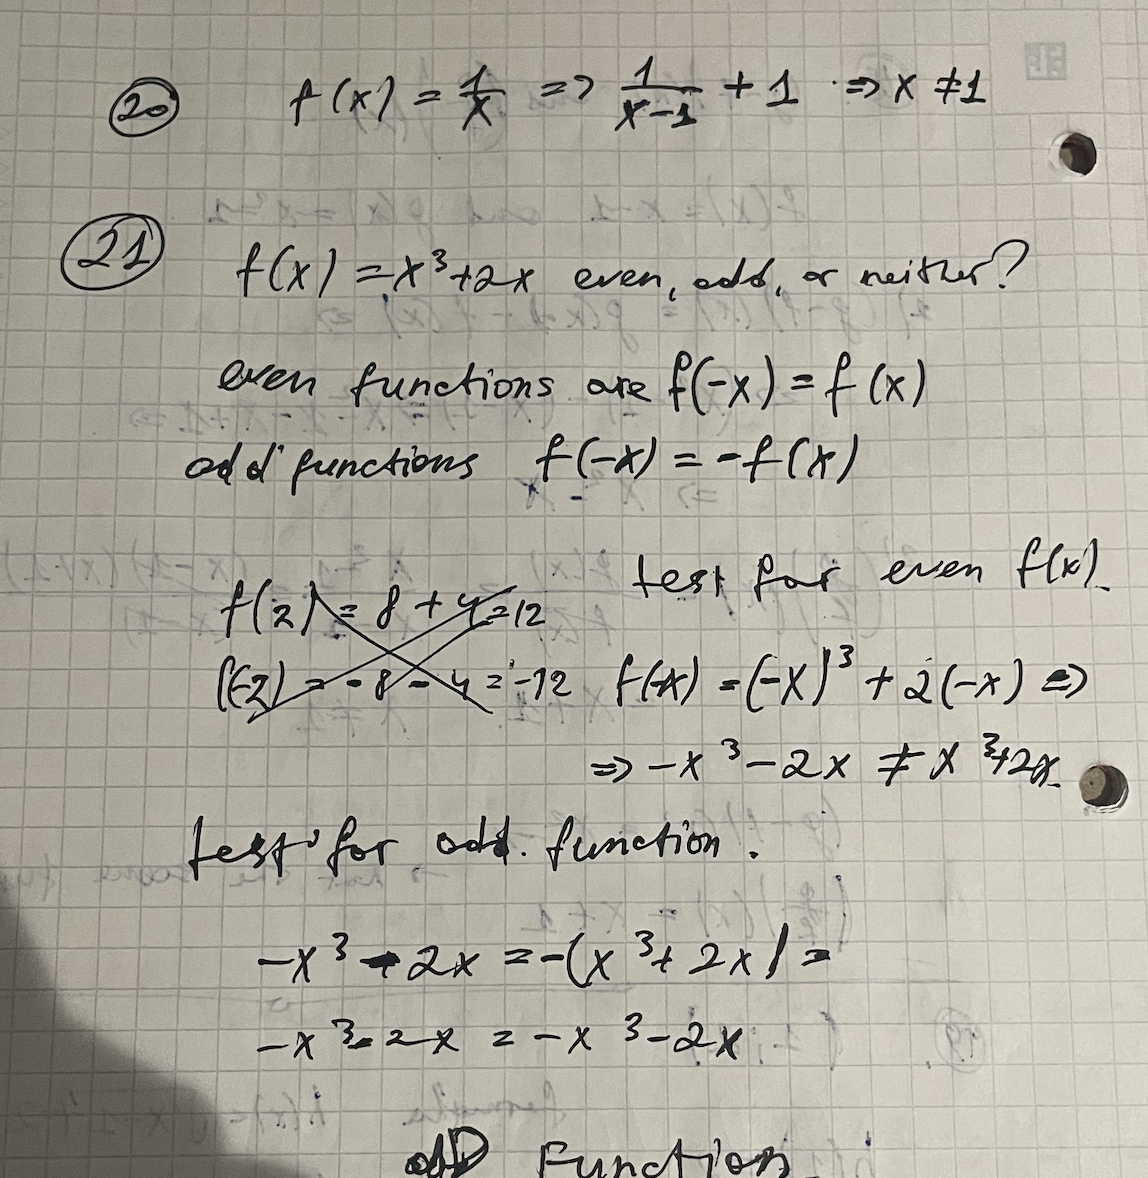 20 f(x) = 1/x => 1/(x-1) + 1 => x ≠ 1
21 f(x) = x³+2x even, odd, or neither?
even functions are f(-x) = f(x)
odd functions f(-x) = -f(x)
test for even f(x).
f(2) = 8 + 4 = 12
f(-2) = -8 - 4 = -12
f(-x) = (-x)³ + 2(-x) =>
=> -x³ - 2x ≠ x³+2x
test for odd. function.
-x³ - 2x = -(x³ + 2x) =
-x³ - 2x = -x³ - 2x
odD Function